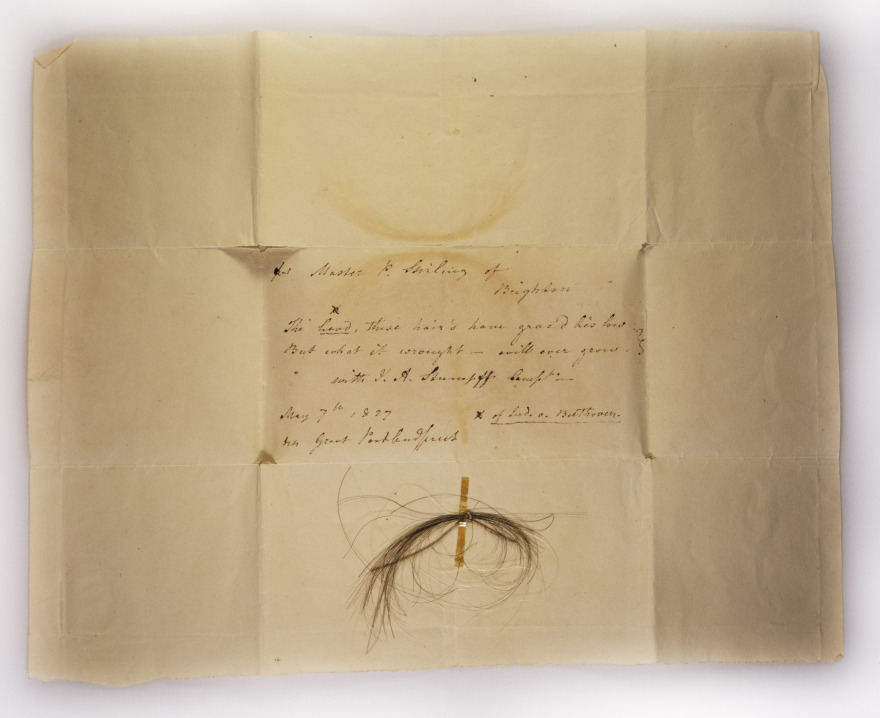 for Master P. Stirling of
Brighton
x
The head, these hair's have grac'd lies low
But what it wrought — will ever grow.
" with J. A. Stumpff's Compts
May 7th 1827
x of Lud. v. Beethoven.
44 Great Portland Street